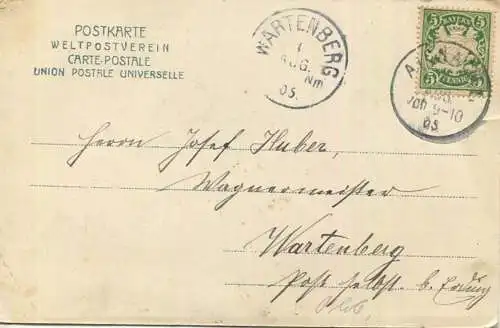 POSTKARTE
WELTPOSTVEREIN
CARTE-POSTALE
UNION POSTALE UNIVERSELLE
WARTENBERG
1
AUG.
Nm
05.
5 BAYERN 5
5 PFENNIG 5
AUG.
9-10
05
Herrn Josef Huber,
Wagnermeister
Wartenberg
Post selbst. b. Erding